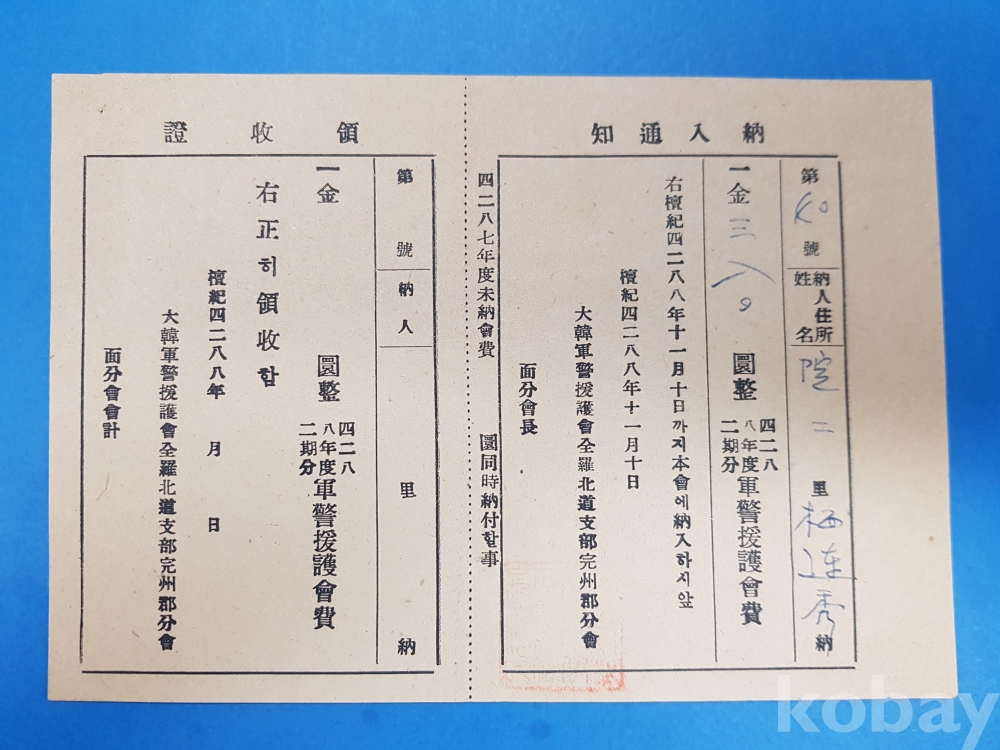 納入通知
第 40 號
納人住所
姓名
院 二 里 納
一金 三八0 圜整
四二八八年度二期分 軍警援護會費
右檀紀四二八八年十一月十日까지本會에納入하시앞
檀紀四二八八年十一月十日
大韓軍警援護會全羅北道支部完州郡分會
面分會長
四二八七年度未納會費 圜同時納付할事
領收證
第 號
納人 里 納
一金 圜整
四二八八年度二期分 軍警援護會費
右正히領收함
檀紀四二八八年 月 日
大韓軍警援護會全羅北道支部完州郡分會
面分會會計
kobay